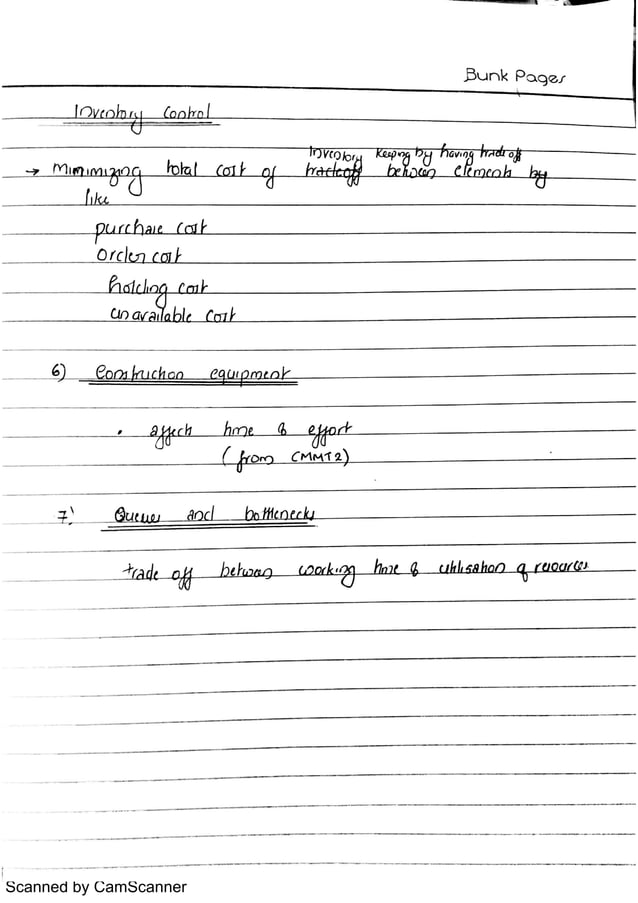 Bunk Pages
Inventory Control
Inventory keeping by having trade off
→ Minimizing total cost of tradeoff between elements by
like
purchase cost
Order cost
holding cost
unavailable cost
6) Construction equipment
• affects time & effort
(from CMMT2)
7) Queues and bottlenecks
trade off between working time & utilisation of resources
Scanned by CamScanner